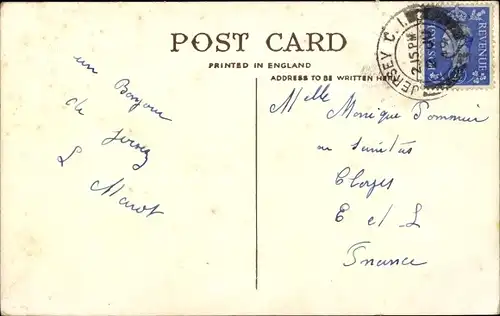 POST CARD
PRINTED IN ENGLAND
ADDRESS TO BE WRITTEN HERE
JERSEY C.I.
2.15 PM
POSTAGE REVENUE
un Bonjour
de Jersey
L Marot
Melle Monique Pommier
au
Cloyes
E et L
France